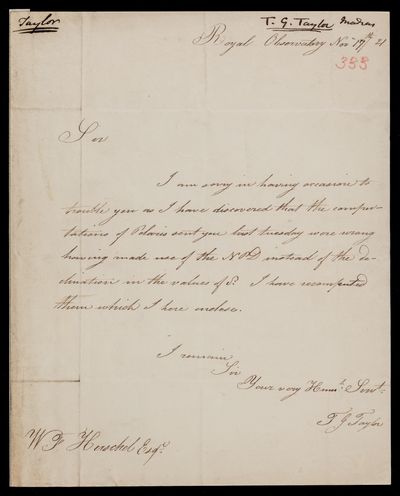 Taylor
T. G. Taylor Madras
Royal Observatory Nov 17th 21
355
Sir
I am sorry in having occasion to
trouble you as I have discovered that the compu-
tations of Polaris sent you last tuesday were wrong
having made use of the NPD instead of the de-
clination in the values of S. I have recomputed
them which I here enclose.
I remain
Sir
Your very Humle. Servt.
T G Taylor
W F Herschel Esqr.